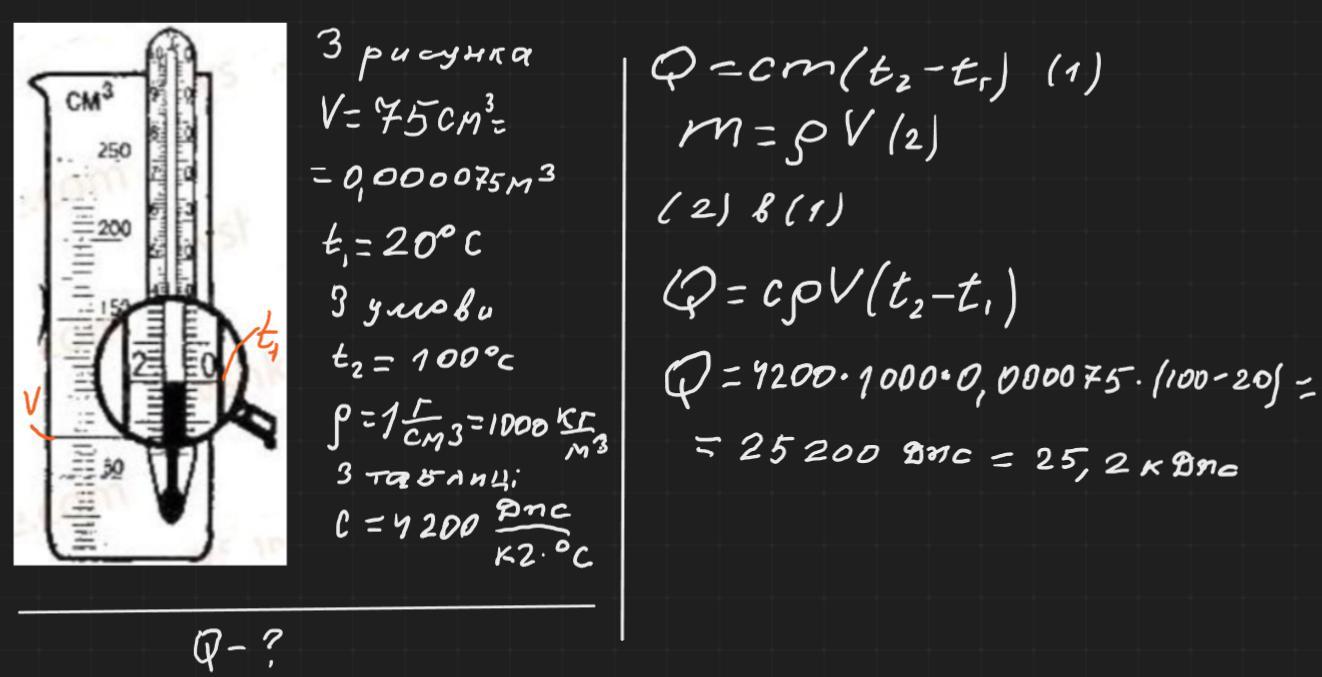 СМ³
250
200
150
50
2 0
V
t₁
З рисунка
V = 75 см³ =
= 0,000075 м³
t₁ = 20°C
З умови
t₂ = 100°C
ρ = 1 г/см³ = 1000 кг/м³
З таблиці
c = 4200 Дж/кг·°C
Q - ?
Q = cm(t₂ - t₁) (1)
m = ρV (2)
(2) в (1)
Q = cρV(t₂ - t₁)
Q = 4200·1000·0,000075·(100-20) =
= 25200 Дж = 25,2 кДж